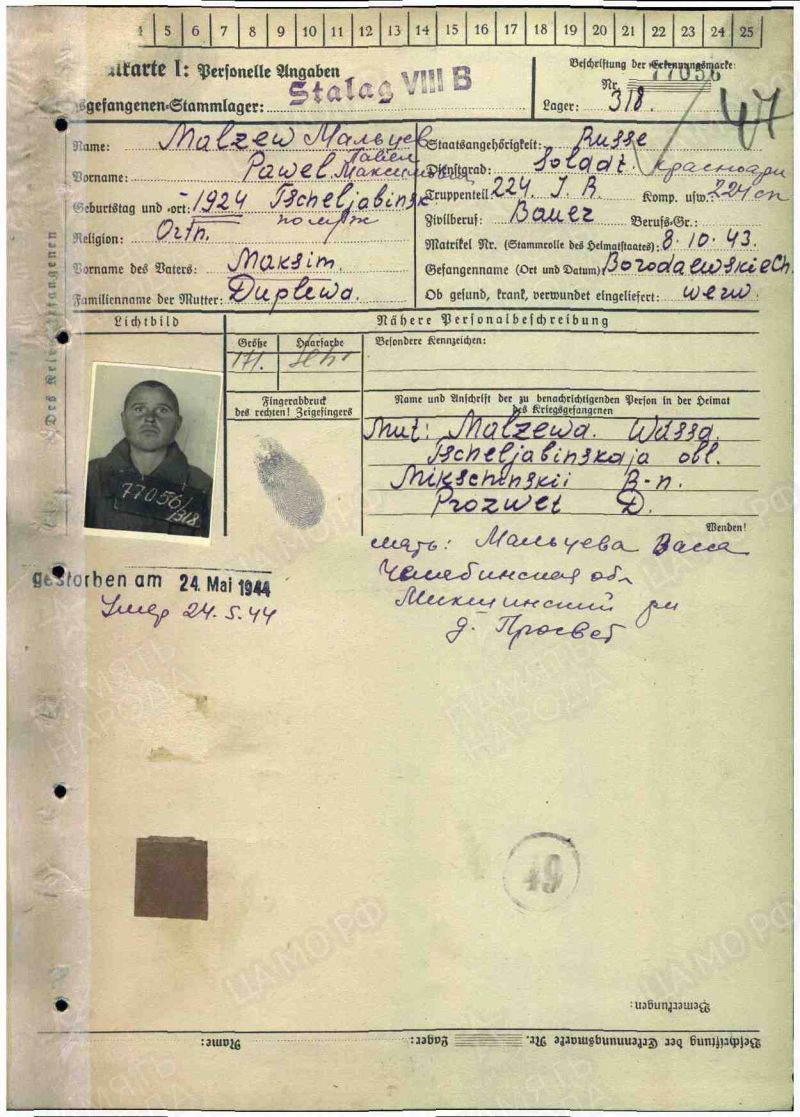 4 5 6 7 8 9 10 11 12 13 14 15 16 17 18 19 20 21 22 23 24 25
alkarte I: Personelle Angaben
Stalag VIII B
sgefangenen-Stammlager:
Beschriftung der Erkennungsmarke:
Nr. 77056
Lager: 318.
47
Des Kriegsgefangenen
Name: Malzew Мальцев
Vorname: Pawel Павел Максимович
Geburtstag und -ort: -1924 Tscheljabinsk
Religion: Orth.
Vorname des Vaters: Maksim.
Familienname der Mutter: Duplewa.
Staatsangehörigkeit: Russe
Dienstgrad: Soldat красноарм
Truppenteil 224. I. R Komp. usw.: 224 сп
Zivilberuf: Bauer Berufs-Gr.:
Matrikel Nr. (Stammrolle des Heimatstaates): 8.10.43.
Gefangenname (Ort und Datum): Borodaewskie Ch.
Ob gesund, krank, verwundet eingeliefert: werw.
Lichtbild
Nähere Personalbeschreibung
Größe Haarfarbe
171.
Besondere Kennzeichen:
Fingerabdruck
des rechten! Zeigefingers
Name und Anschrift der zu benachrichtigenden Person in der Heimat
des Kriegsgefangenen
Mut: Malzewa. Wassa.
Tscheljabinskaja obl.
Mikschinskii R-n.
Prozwet D.
Wenden!
77056/
318
мать: Мальцева Васса
Челябинская обл
Микшинский рн
д. Просвет
gestorben am 24. Mai 1944
Умер 24.5.44
49
Bemerkungen:
Name: Lager: Beschriftung der Erkennungsmarke Nr.
ПАМЯТЬ
НАРОДА
ЦАМО РФ